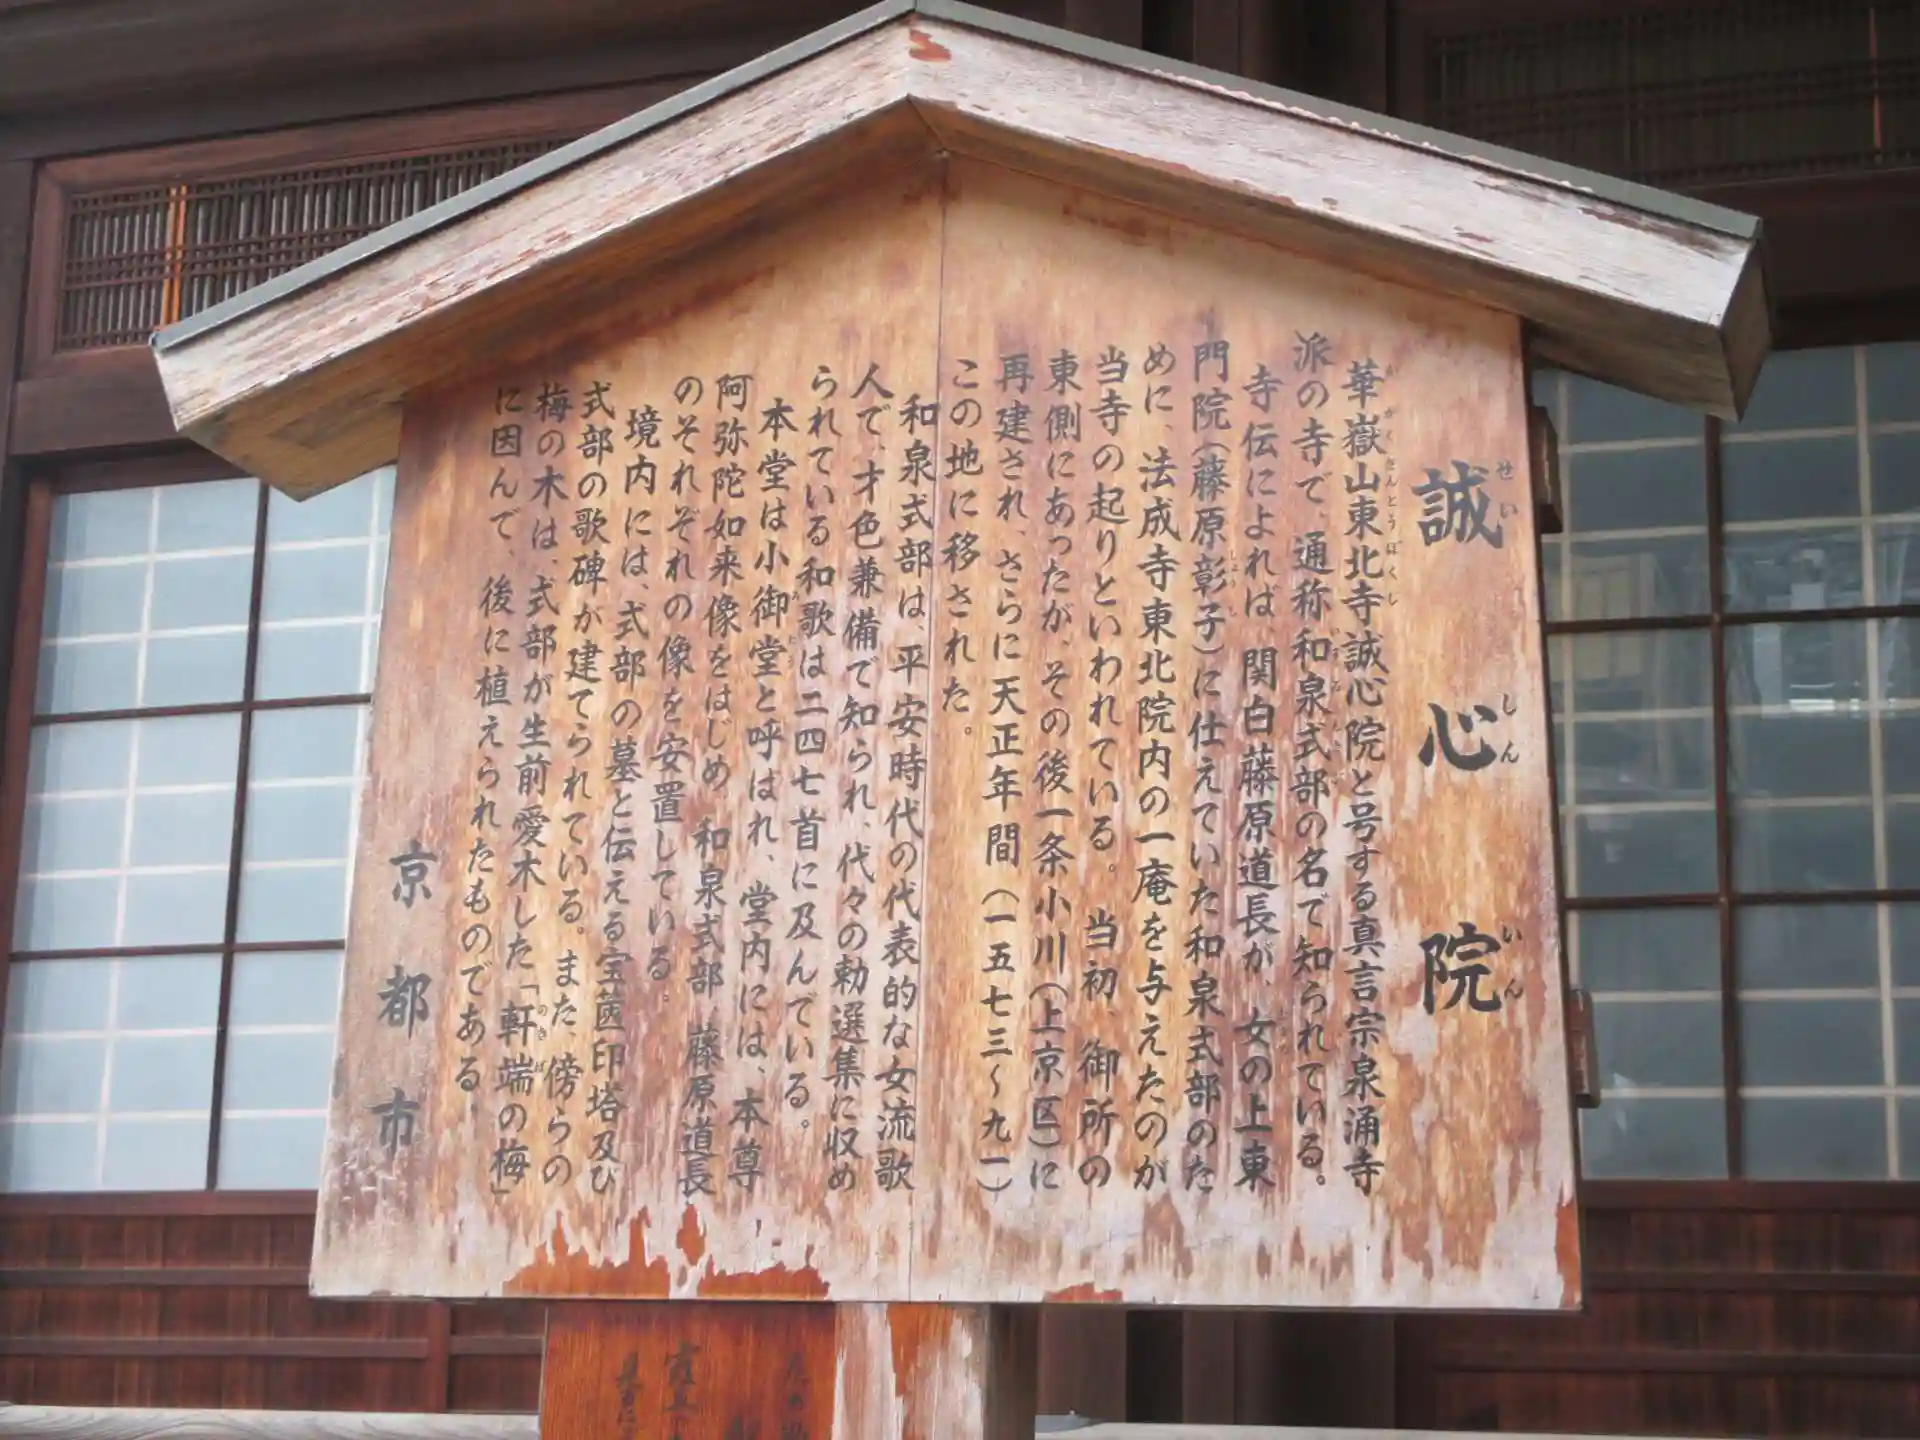 誠心院
華嶽山東北寺誠心院と号する真言宗泉涌寺
派の寺で、通称和泉式部の名で知られている。
寺伝によれば、関白藤原道長が、女の上東
門院(藤原彰子)に仕えていた和泉式部のた
めに、法成寺東北院内の一庵を与えたのが
当寺の起りといわれている。当初、御所の
東側にあったが、その後一条小川(上京区)に
再建され、さらに天正年間(一五七三〜九一)
この地に移された。
和泉式部は、平安時代の代表的な女流歌
人で、才色兼備で知られ、代々の勅選集に収め
られている和歌は二四七首に及んでいる。
本堂は小御堂と呼ばれ、堂内には、本尊
阿弥陀如来像をはじめ、和泉式部、藤原道長
のそれぞれの像を安置している。
境内には、式部の墓と伝える宝篋印塔及び
式部の歌碑が建てられている。また、傍らの
梅の木は、式部が生前愛木した「軒端の梅」
に因んで、後に植えられたものである
京都市